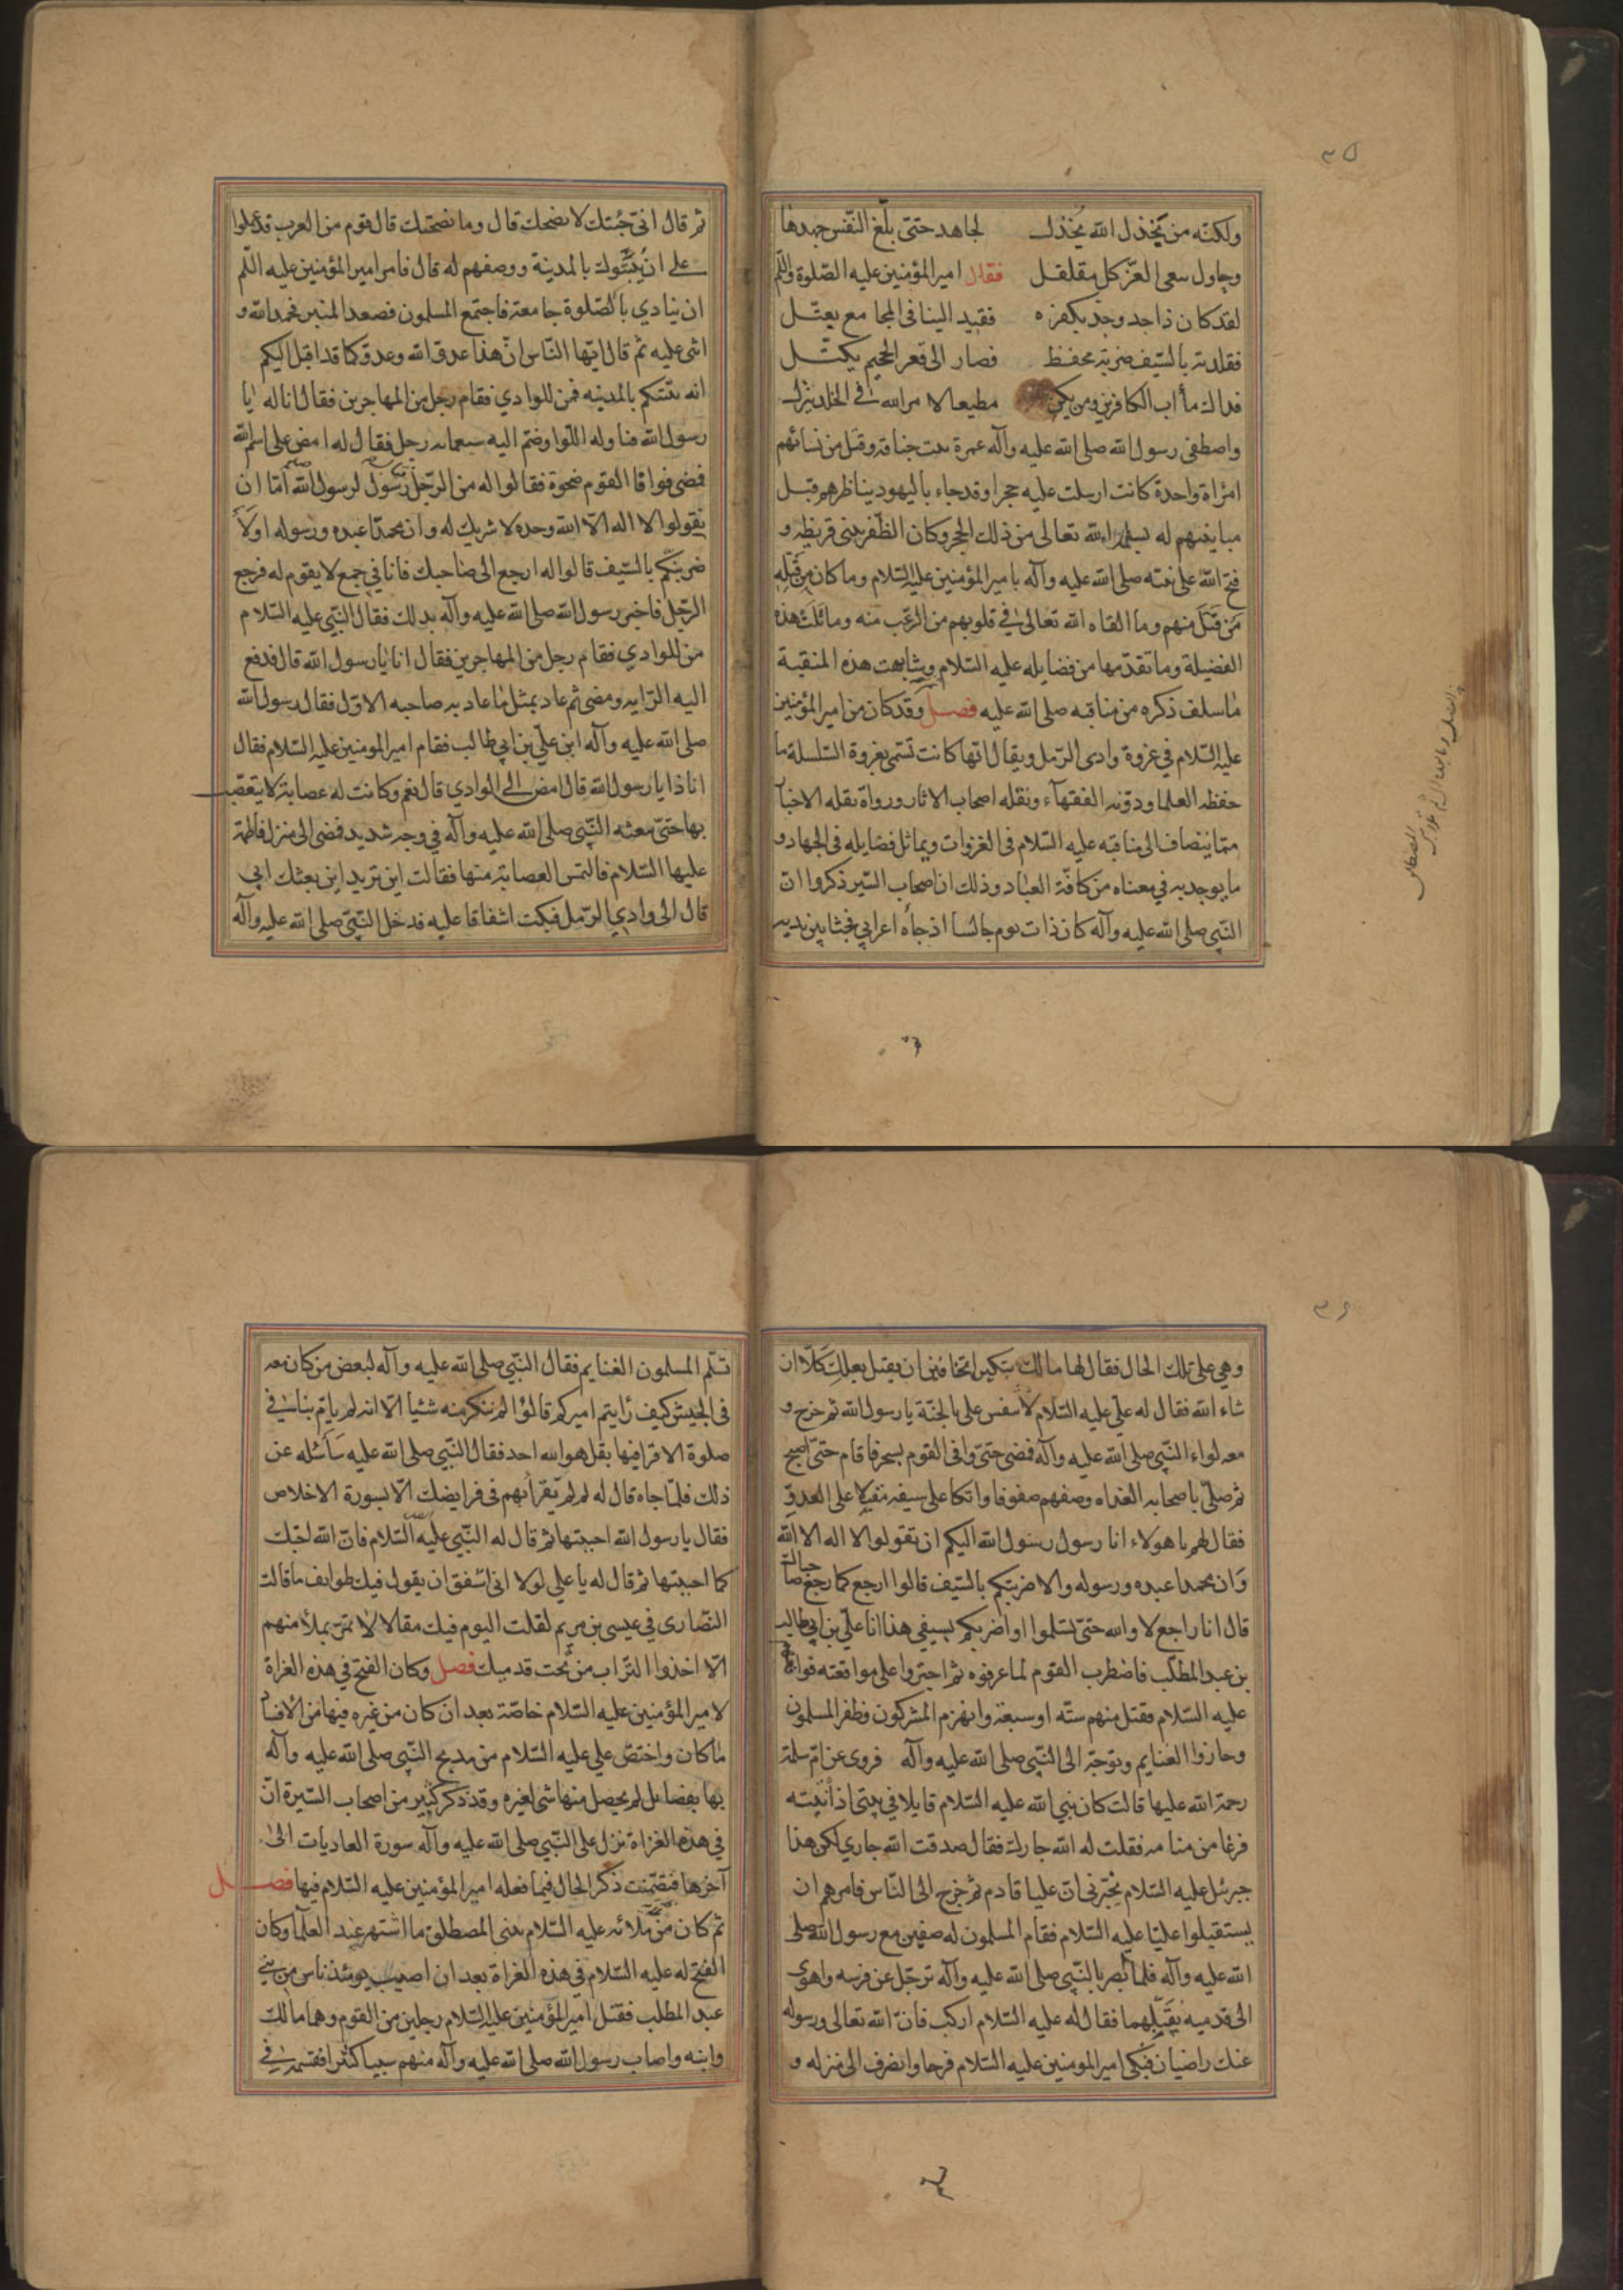 ٣٥
ولكنّه من يخذل الله يخذل لجاهد حتى بلّغ النّفس جهدها
وحاول سعى العزّ كل مقلقل فقال امير المؤمنين عليه الصّلوة والسّلم
لقد كان ذا جد وجد بكفره فقيد الينا فى المجامع يعتل
فقلدته بالسّيف ضربة محفظ فصار الى قعر الجحيم يكبّل
فذاك مأاب الكافرين ومن يكن مطيعا لامر الله فى الخلد ينزل
واصطفى رسول الله صلى الله عليه وآله عمرة بنت خناقة وقتل من نسائهم
امرأة واحدة كانت ارسلت عليه حجرا وقد جاء باليهود يناظرهم قبل
مباينتهم له فسلمه الله تعالى من ذلك الحجر وكان الظّفر ببنى قريظه و
فتح الله على نبيّه صلى الله عليه وآله بامير المؤمنين عليه السّلام وما كان من قبله
من قتل منهم وما القاه الله تعالى في قلوبهم من الرّعب منه وماثلت هذه
الفضيلة وما تقدّمها من فضايله عليه السّلام وشابهت هذه المنقبة
ما سلف ذكره من مناقبه صلى الله عليه فصل وقد كان من امير المؤمنين
عليه السّلام في غزوة وادى الرّمل ويقال انها كانت تسّمى بغزوة السّلسلة ما
حفظه العلما ودوّنه الفقهآء ونقله اصحاب الاثار ورواه نقله الاخبار
ممّا ينضاف الى مناقبه عليه السّلام فى الغزوات ويماثل فضايله فى الجهاد و
ما يوجد به في معناه من كافّة العباد وذلك ان اصحاب السّير ذكروا انّ
النّبي صلى الله عليه وآله كان ذات يوم جالسا اذ جاه اعرابي فجثا بين يديه
ثم قال انّي جئتك لانصحك قال وما نصحتك قال قوم من العرب قد عملوا
على ان يبيّتوك بالمدينة ووصفهم له قال فامر امير المؤمنين عليه السّلم
ان ينادي بالصّلوة جامعة فاجتمع المسلمون فصعد المنبر فحمد الله و
اثنى عليه ثم قال ايّها النّاس انّ هذا عدوّ الله وعدوّكم قد اقبل اليكم
انه يبيّتكم بالمدينه فمن للوادي فقام رجل من المهاجرين فقال انا له يا
رسول الله فناوله اللّوا وضم اليه سبعمايه رجل فقال له امض على اسم الله
فمضى فوافا القوم ضحوة فقالوا له من الرّجل رسول لرسول الله امّا ان
يقولوا لا اله الّا الله وحده لا شريك له وان محمّدا عبده ورسوله اولا
ضربتكم بالسّيف قالوا له ارجع الى صاحبك فانا في جمع لا يقوم له فرجع
الرّجل فاخبر رسول الله صلى الله عليه وآله بذلك فقال النّبي عليه السّلام
من للوادي فقام رجل من المهاجرين فقال انا يا رسول الله قال فدفع
اليه الرّايه ومضى ثم عاد بمثل ما عاد به صاحبه الاوّل فقال رسول الله
صلى الله عليه وآله اين عليّ بن ابي طالب فقام امير المومنين عليه السّلام فقال
انا ذا يا رسول الله قال امض الى الوادي قال نعم وكانت له عصابة لا يتعصّب
بها حتى يبعثه النّبي صلى الله عليه وآله في وجه شديد فمضى الى منزل فاطمة
عليها السّلام فالتمس العصابة منها فقالت اين تريد اين بعثك ابي
قال الى وادي الرّمل فبكت اشفاقا عليه فدخل النّبيّ صلى الله عليه وآله
٣٦
وهي على تلك الحال فقال لها مالك تبكين اتخافين ان يقتل بعلك كلّا ان
شاء الله فقال له علي عليه السّلام لا تنفس على بالجنّة يا رسول الله ثم خرج و
معه لواء النّبي صلى الله عليه وآله فمضى حتى وافى القوم بسحر فاقام حتى اصبح
ثم صلّى باصحابه الغداه وصفهم صفوفا واتكا على سيفه مقبلا على العدوّ
فقال لهم يا هولاء انا رسول رسول الله اليكم ان تقولوا لا اله الا الله
وان محمدا عبده ورسوله والا ضربتكم بالسّيف قالوا ارجع كما رجع صاحباك
قال انا راجع لا والله حتى تسلموا او اضربكم بسيفي هذا انا عليّ بن ابي طالب
بن عبد المطلّب فاضطرب القوم لما عرفوه ثم اجتروا على مواقعته فواقعهم
عليه السّلام فقتل منهم ستّه او سبعة وانهزم المشركون وظفر المسلمون
وحازوا الغنايم وتوجّه الى النّبي صلى الله عليه وآله فروى عن امّ سلمة
رحمة الله عليها قالت كان نبي الله عليه السّلام قايلا في بيتي اذ انتبه
فزعا من منامه فقلت له الله جارك فقال صدقت الله جاري لكن هذا
جبرئيل عليه السّلام يخبّرني انّ عليا قادم ثم خرج الى النّاس فامرهم ان
يستقبلوا عليّا عليه السّلام فقام المسلمون له صفين مع رسول الله صلى
الله عليه وآله فلما بصر بالنّبي صلى الله عليه وآله ترجّل عن فرسه واهوى
الى قدميه يقبّلهما فقال له عليه السّلام اركب فانّ الله تعالى ورسوله
عنك راضيان فبكى امير المومنين عليه السّلام فرحا وانصرف الى منزله و
تسلّم المسلمون الغنايم فقال النّبي صلى الله عليه وآله لبعض من كان معه
فى الجيش كيف رايتم اميركم قالوا لم ننكر منه شئيا الا انه لم يامّ بنا في
صلوة الا قرا فيها بقل هو الله احد فقال النّبي صلى الله عليه سأسئله عن
ذلك فلمّا جاه قال له لم لم تقرأ بهم فى فرايضك الّا بسورة الاخلاص
فقال يا رسول الله احببتها ثم قال له النّبي عليه السّلام فانّ الله احبّك
كما احببتها ثم قال له يا علي لولا انى اشفق ان يقول فيك طوايف ما قالت
النّصارى في عيسى بن مريم لقلت اليوم فيك مقالا لا تمرّ بملأ منهم
الّا اخذوا التّراب من تحت قدميك فصل وكان الفتح في هذه الغزاة
لامير المؤمنين عليه السّلام خاصّة بعد ان كان من غيره فيها من الافساد
ما كان واختصّ علي عليه السّلام من مديح النّبي صلى الله عليه وآله
بها بفضايل لم يحصل منها شى لغيره وقد ذكر كثير من اصحاب السّيرة انّ
في هذه الغزاة نزل على النّبي صلى الله عليه وآله سورة العاديات الى
آخرها فتضمّنت ذكر الحال فيما فعله امير المؤمنين عليه السّلام فيها فصل
ثم كان من بلائه عليه السّلام ببنى المصطلق ما اشتهر عند العلما وكان
الفتح له عليه السّلام في هذه الغزاة بعد ان اصيب يومئذ ناس من بني
عبد المطلب فقتل امير المؤمنين عليه السّلام رجلين من القوم وهما مالك
وابنه واصاب رسول الله صلى الله عليه وآله منهم سبيا كثيرا فقسمه في